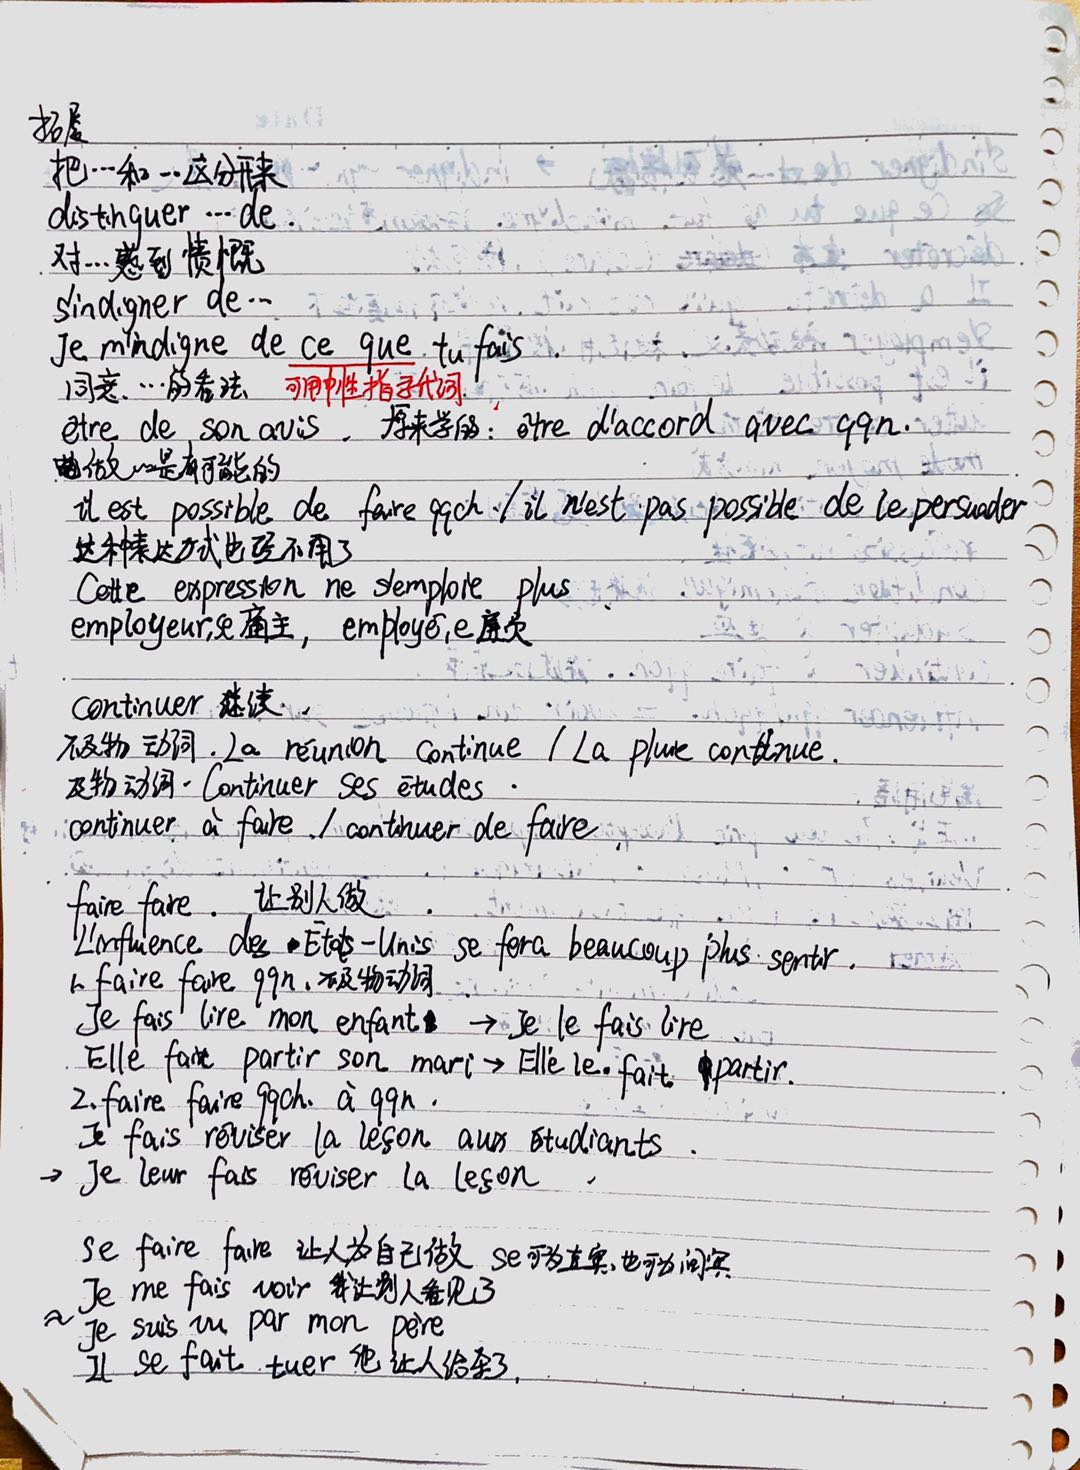 拓展
把…和…区分开来
distinguer … de.
对…感到愤慨
s'indigner de…
Je m'indigne de ce que tu fais.
同意…的看法 可用中性指示代词
être de son avis. 原来学的: être d'accord avec qqn.
做…是有可能的
il est possible de faire qqch. / il n'est pas possible de le persuader
这种表达方式已经不用了
Cette expression ne s'emploie plus
employeur,se 雇主, employé,e 雇员
continuer 继续.
不及物动词. La réunion continue / La pluie continue.
及物动词. Continuer ses études.
continuer à faire / continuer de faire
faire faire. 让别人做.
L'influence des États-Unis se fera beaucoup plus sentir.
1. faire faire qqn. 不及物动词
Je fais lire mon enfant → Je le fais lire
Elle fait partir son mari → Elle le fait partir.
2. faire faire qqch. à qqn.
Je fais réviser la leçon aux étudiants.
→ Je leur fais réviser la leçon.
se faire faire 让人为自己做 se可为直宾,也可为间宾
Je me fais voir 我让别人看见了
≈ Je suis vu par mon père
Il se fait tuer 他让人给杀了.